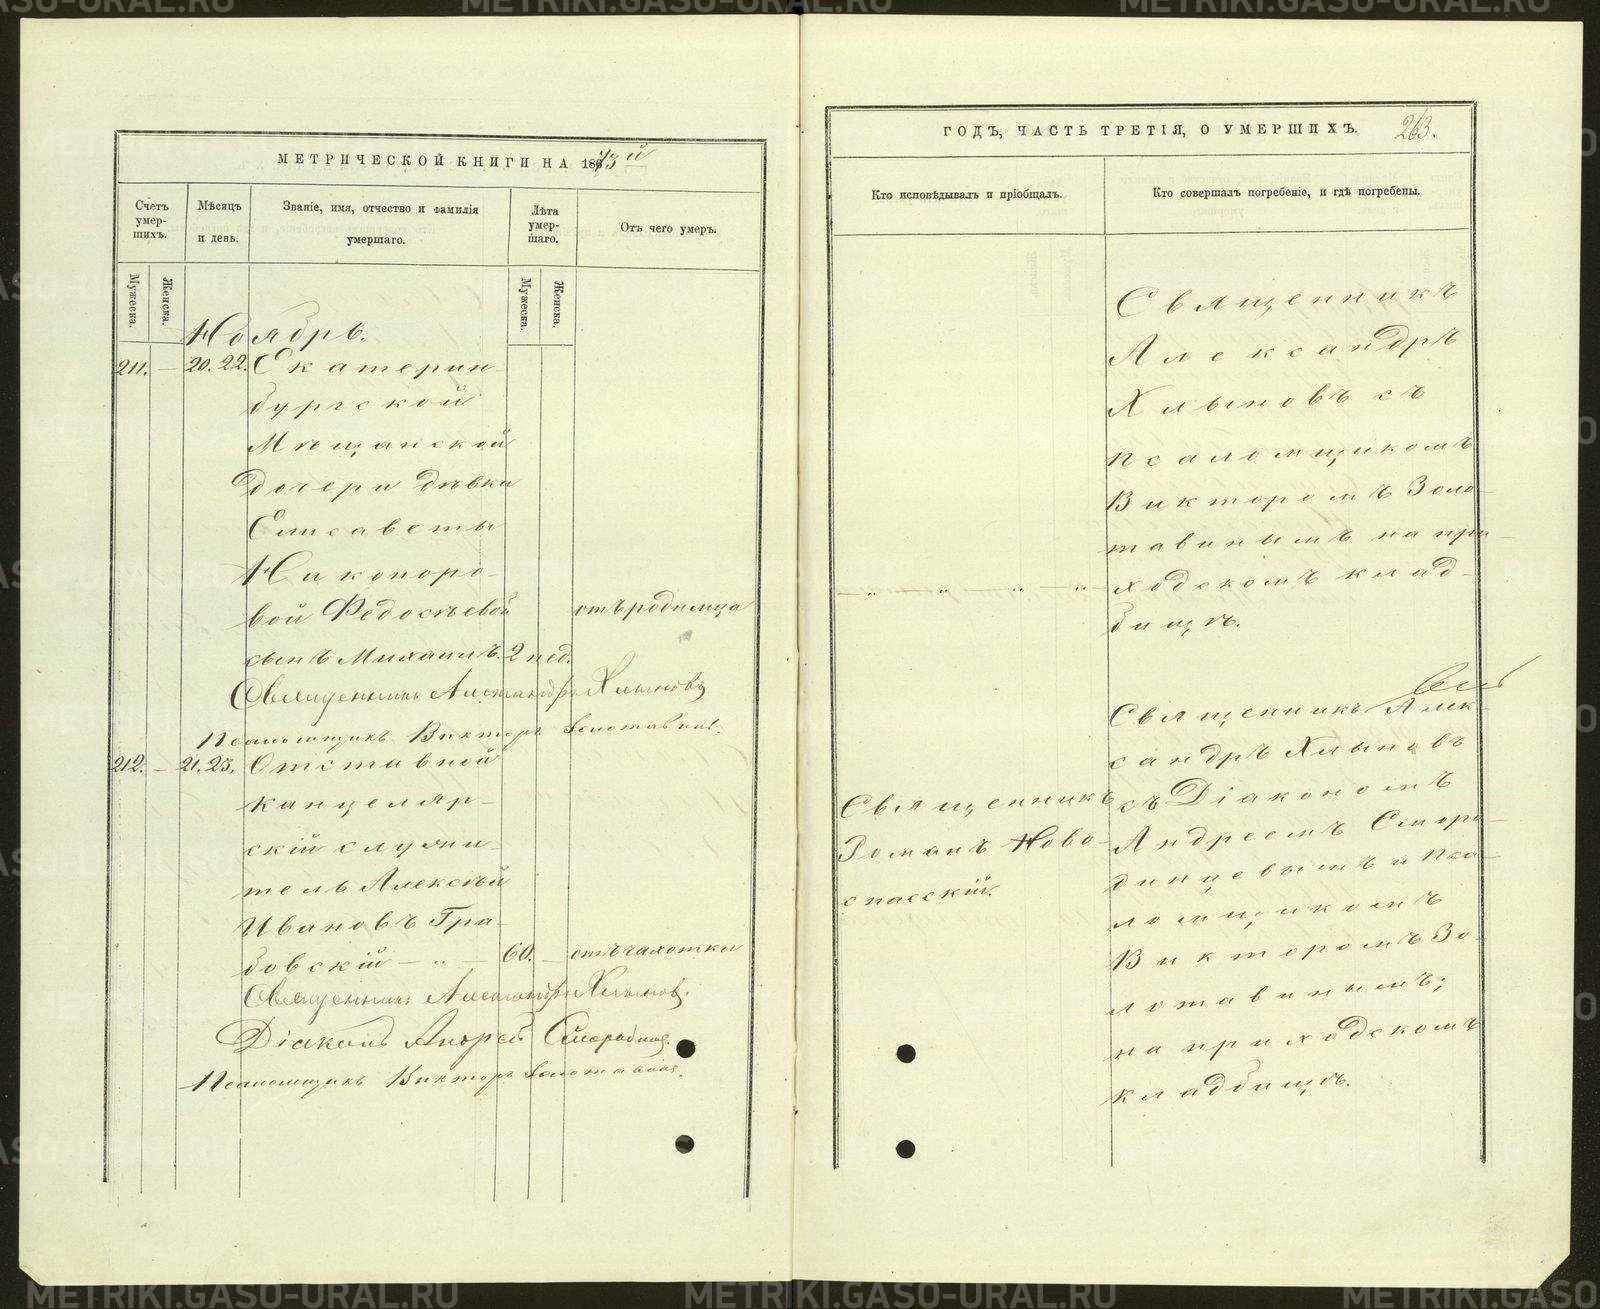 МЕТРИЧЕСКОЙ КНИГИ НА 1873й
Счетъ умер-шихъ.
Мѣсяцъ и день.
Званіе, имя, отчество и фамилія умершаго.
Лѣта умер-шаго.
Отъ чего умеръ.
Мужеска.
Женска.
Мужеска.
Женска.
Ноябрь.
211. — 20. 22. Екатерин-
бургской
Мѣщанской
дочери дѣвки
Елисаветы
Никоноро-
вой Федосѣевой отъ родимца
сынъ Михаилъ. 2 нед.
Священникъ Александръ Хлыновъ
Псаломщикъ Викторъ Золотавинъ.
212. — 21. 23. Отставной
канцеляр-
скій служи-
тель Алексѣй
Ивановъ Гра-
бовскій — „ — 60. — отъ чахотки
Священникъ Александръ Хлыновъ.
Діаконъ Андрей
Псаломщикъ Викторъ Золотавинъ.
ГОДЪ, ЧАСТЬ ТРЕТІЯ, О УМЕРШИХЪ. 263.
Кто исповѣдывалъ и пріобщалъ.
Кто совершалъ погребеніе, и гдѣ погребены.
Священникъ
Александръ
Хлыновъ съ
псаломщикомъ
Викторомъ Золо-
тавинымъ на при-
— „ „ „ — „ — ходскомъ клад-
бищѣ.
Священникъ Алек-
сандръ Хлыновъ
Священникъ съ Діакономъ
Романъ Ново- Андреемъ Сморо-
спасскій. динцевымъ и пса-
ломщикомъ
Викторомъ Зо-
лотавинымъ;
на приходскомъ
кладбищѣ.
METRIKI.GASO-URAL.RU